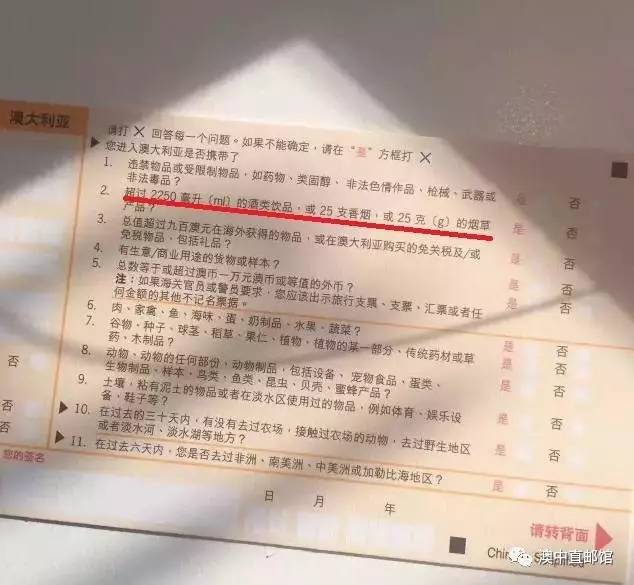 澳大利亚
请打 X 回答每一个问题。如果不能确定，请在 "是" 方框打 X
▶您进入澳大利亚是否携带了
1. 违禁物品或受限制物品，如药物、类固醇、非法色情作品、枪械、武器或
非法毒品？
是 否
2. 超过 2250 毫升（ml）的酒类饮品，或 25 支香烟，或 25 克（g）的烟草
产品？
是 否
3. 总值超过九百澳元在海外获得的物品，或在澳大利亚购买的免关税及/或
免税物品，包括礼品？
是 否
4. 有生意/商业用途的货物或样本？
是 否
5. 总数等于或超过澳币一万元澳币或等值的外币？
是 否
注：如果海关官员或警员要求，您应该出示旅行支票、支票、汇票或者任
何金额的其他不记名票据。
6. 肉、家禽、鱼、海味、蛋、奶制品、水果、蔬菜？
是 否
7. 谷物、种子、球茎、稻草、果仁、植物、植物的某一部分、传统药材或草
药、木制品？
是 否
8. 动物、动物的任何部份，动物制品，包括设备、宠物食品、蛋类、
生物制品、样本、鸟类、鱼类、昆虫、贝壳、蜜蜂产品？
是 否
9. 土壤，粘有泥土的物品或者在淡水区使用过的物品，例如体育、娱乐设
备、鞋子等？
是 否
▶10. 在过去的三十天内，有没有去过农场，接触过农场的动物，去过野生地区
或者淡水河、淡水湖等地方？
是 否
▶11. 在过去六天内，您是否去过非洲、南美洲、中美洲或加勒比海地区？
是 否
否
否
否
您的签名
日 月 年
请转背面
澳中直邮馆